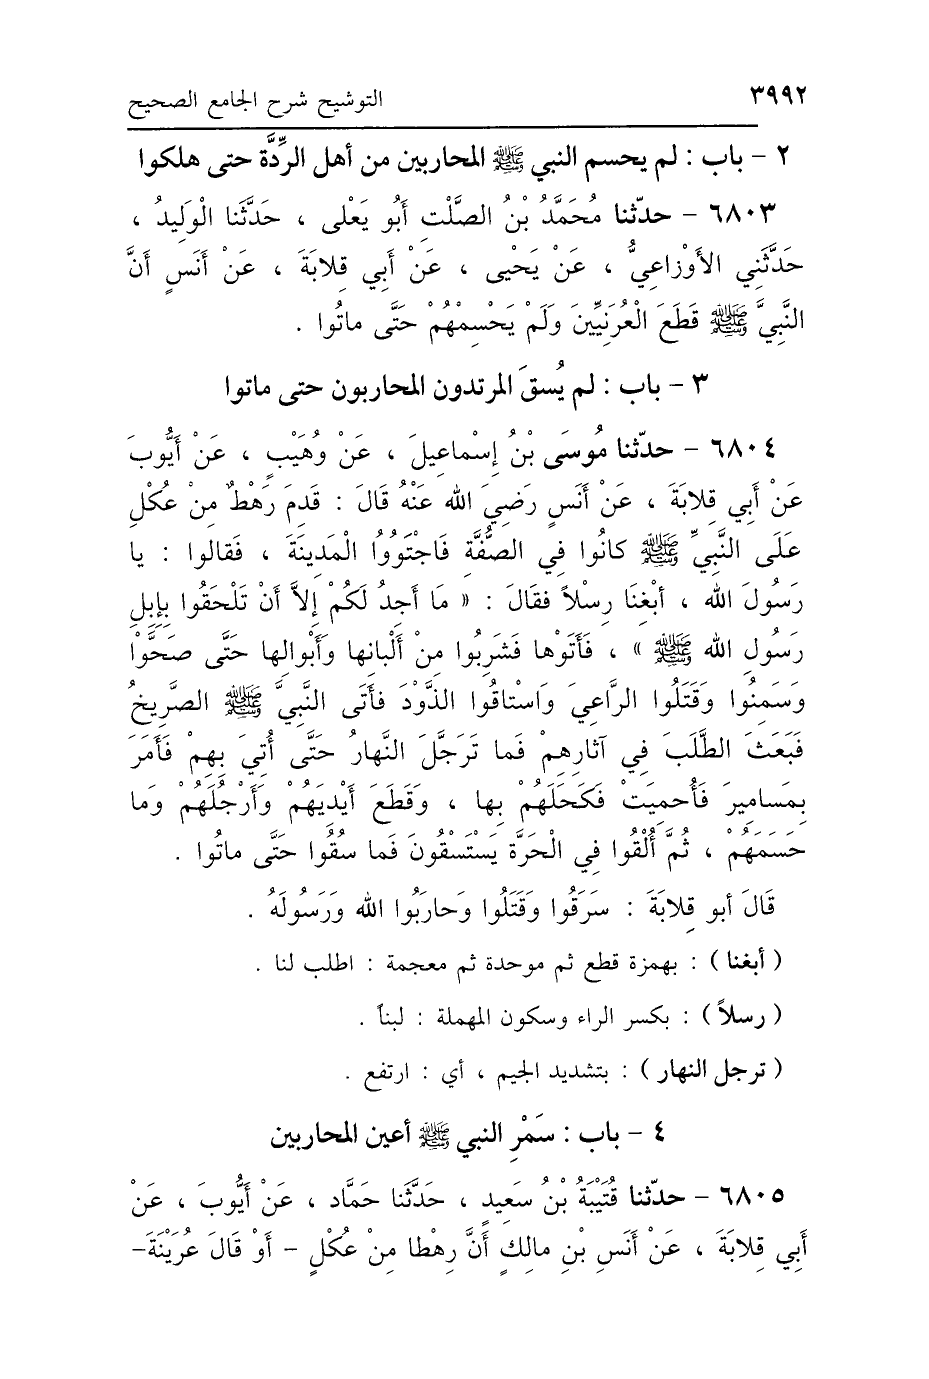 ٣٩٩٢ التوشيح شرح الجامع الصحيح
٢ - باب : لم يحسم النبي ﷺ المحاربين من أهل الرِّدَّة حتى هلكوا
٦٨٠٣ - حدّثنا مُحَمَّدُ بْنُ الصَّلْتِ أَبُو يَعْلى ، حَدَّثَنا الْوَلِيدُ ،
حَدَّثَنِي الأَوْزاعِيُّ ، عَنْ يَحْيى ، عَنْ أَبِي قِلابَةَ ، عَنْ أَنَسٍ أَنَّ
النَّبِيَّ ﷺ قَطَعَ الْعُرَنِيِّينَ وَلَمْ يَحْسِمْهُمْ حَتَّى ماتُوا .
٣ - باب : لم يُسقَ المرتدون المحاربون حتى ماتوا
٦٨٠٤ - حدّثنا مُوسَى بْنُ إِسْماعِيلَ ، عَنْ وُهَيْبٍ ، عَنْ أَيُّوبَ
عَنْ أَبِي قِلابَةَ ، عَنْ أَنَسٍ رَضِيَ الله عَنْهُ قَالَ : قَدِمَ رَهْطٌ مِنْ عُكْلٍ
عَلَى النَّبِيِّ ﷺ كانُوا فِي الصُّفَّةِ فَاجْتَوَوُا الْمَدِينَةَ ، فَقالوا : يا
رَسُولَ الله ، أَبْغِنَا رِسْلاً فقَالَ : « مَا أَجِدُ لَكُمْ إِلاَّ أَنْ تَلْحَقُوا بِإِبِلِ
رَسُولِ الله ﷺ » ، فَأَتَوْها فَشَرِبُوا مِنْ أَلْبانِها وَأَبْوالِها حَتَّى صَحُّوْا
وَسَمِنُوا وَقَتَلُوا الرَّاعِيَ وَاسْتاقُوا الذَّوْدَ فَأَتَى النَّبِيَّ ﷺ الصَّرِيخُ
فَبَعَثَ الطَّلَبَ فِي آثارِهِمْ فَما تَرَجَّلَ النَّهارُ حَتَّى أُتِيَ بِهِمْ فَأَمَرَ
بِمَسامِيرَ فَأُحْمِيَتْ فَكَحَلَهُمْ بِها ، وَقَطَعَ أَيْدِيَهُمْ وَأَرْجُلَهُمْ وَما
حَسَمَهُمْ ، ثُمَّ أُلْقُوا فِي الْحَرَّةِ يَسْتَسْقُونَ فَما سُقُوا حَتَّى ماتُوا .
قَالَ أَبو قِلابَةَ : سَرَقُوا وَقَتَلُوا وَحارَبُوا الله وَرَسُولَهُ .
( أبغنا ) : بهمزة قطع ثم موحدة ثم معجمة : اطلب لنا .
( رسلاً ) : بكسر الراء وسكون المهملة : لبناً .
( ترجل النهار ) : بتشديد الجيم ، أي : ارتفع .
٤ - باب : سَمْرِ النبي ﷺ أعين المحاربين
٦٨٠٥ - حدّثنا قُتَيْبَةُ بْنُ سَعِيدٍ ، حَدَّثَنا حَمَّاد ، عَنْ أَيُّوبَ ، عَنْ
أَبِي قِلابَةَ ، عَنْ أَنَسِ بْنِ مالِكٍ أَنَّ رهْطا مِنْ عُكْلٍ - أَوْ قَالَ عُرَيْنَةَ-